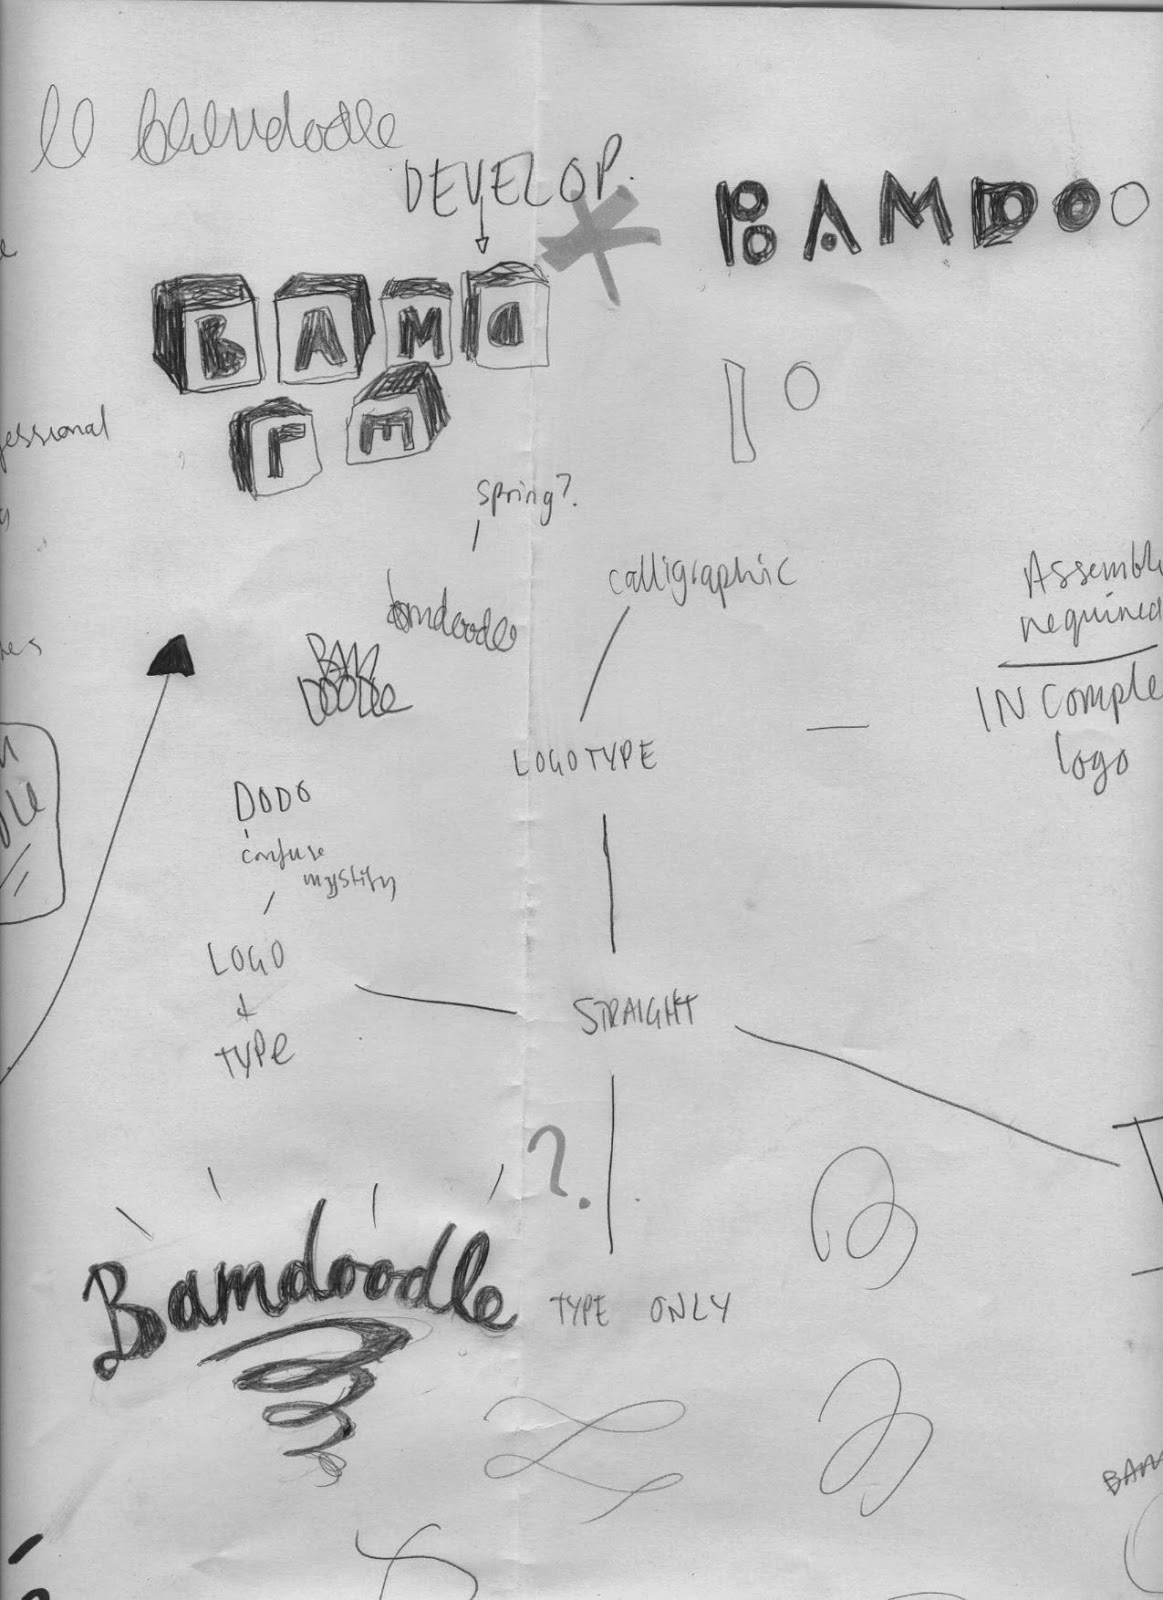 Bamdoodle
DEVELOP.
BAMDOO
BAMD
LE
fessional
spring?
calligraphic
bamdoodle
BAM
DOODLe
Assembl
required
INComple
logo
LOGOTYPE
DODO
confuse
mystify
LOGO
&
TYPe
STRAIGHT
?
Bamdoodle
TYPE ONLY
BAM